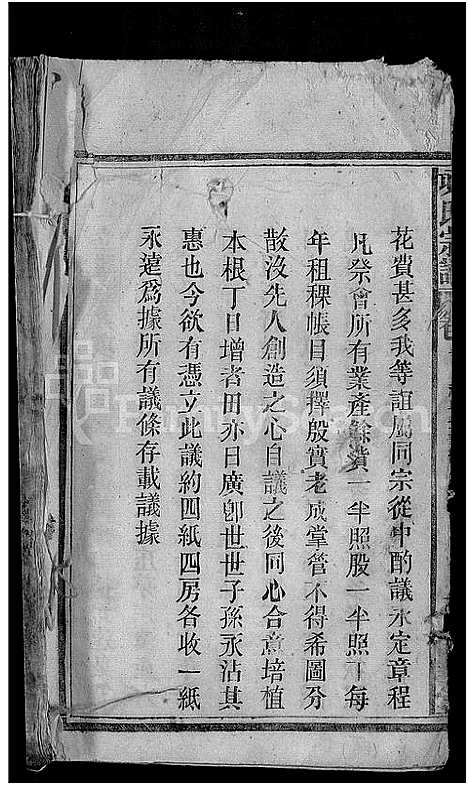 花費甚多我等誼屬同宗從中酌議永定章程
凡祭會所有業產餘貲一半照股一半照丁每
年租稞帳目須擇殷實老成掌管不得希圖分
散沒先人創造之心自議之後同心合意培植
本根丁日增者田亦日廣卽世世子孫永沾其
惠也今欲有憑立此議約四紙四房各收一紙
永遠爲據所有議條存載議據